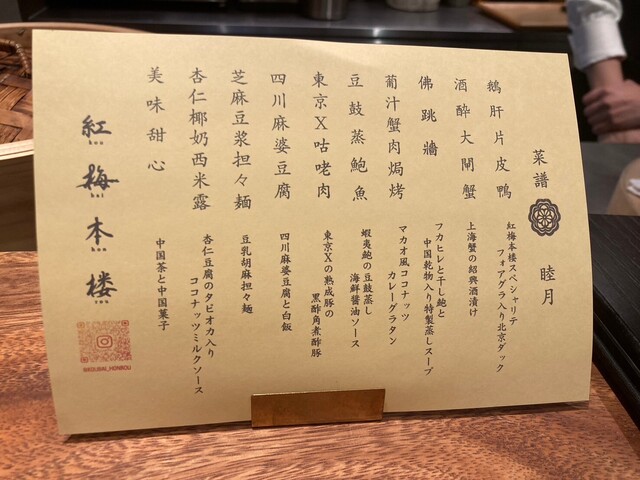 菜譜 睦月
鵝肝片皮鴨
紅梅本楼スペシャリテ
フォアグラ入り北京ダック
酒醉大閘蟹
上海蟹の紹興酒漬け
佛跳牆
フカヒレと干し鮑と
中国乾物入り特製蒸しスープ
葡汁蟹肉焗烤
マカオ風ココナッツ
カレーグラタン
豆鼓蒸鮑魚
蝦夷鮑の豆鼓蒸し
海鮮醤油ソース
東京X咕咾肉
東京Xの熟成豚の
黒酢角煮酢豚
四川麻婆豆腐
四川麻婆豆腐と白飯
芝麻豆浆担々麺
豆乳胡麻担々麺
杏仁椰奶西米露
杏仁豆腐のタピオカ入り
ココナッツミルクソース
美味甜心
中国茶と中国菓子
紅梅本楼
kou bai hon rou
@KOUBAI_HONROU